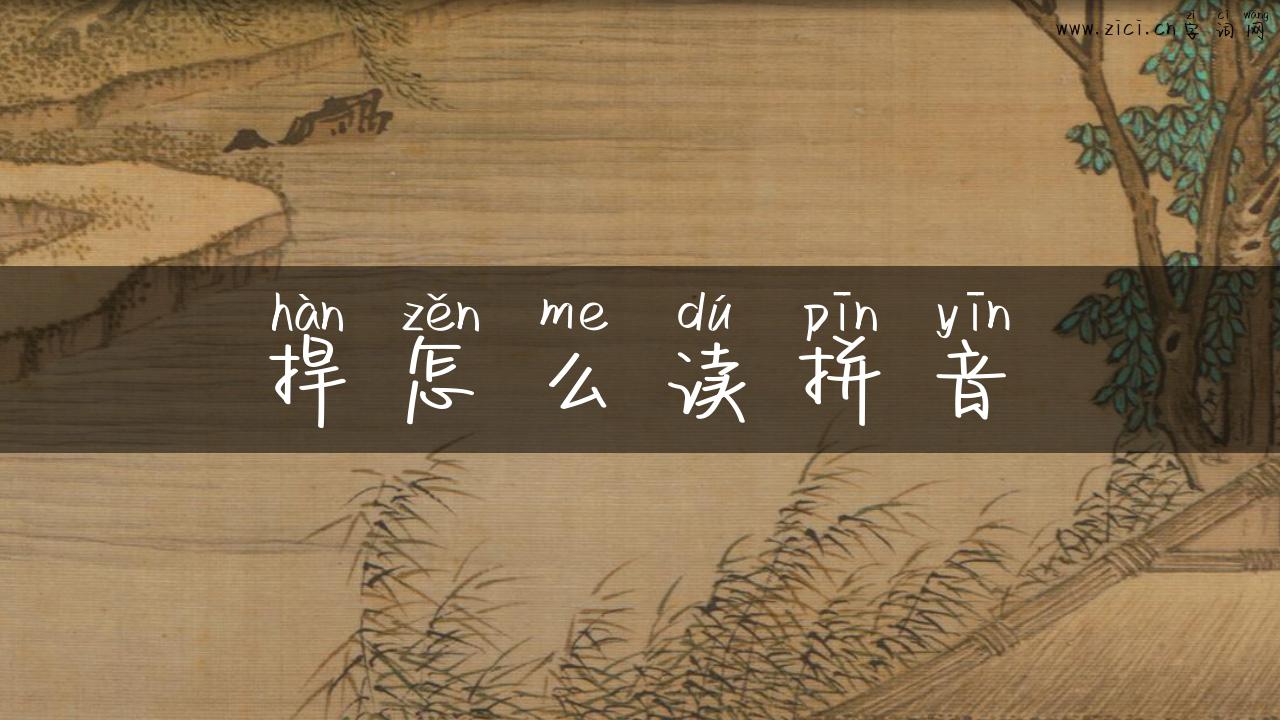 zì cí wǎng
www.zici.cn字词网
hàn zěn me dú pīn yīn
捍怎么读拼音